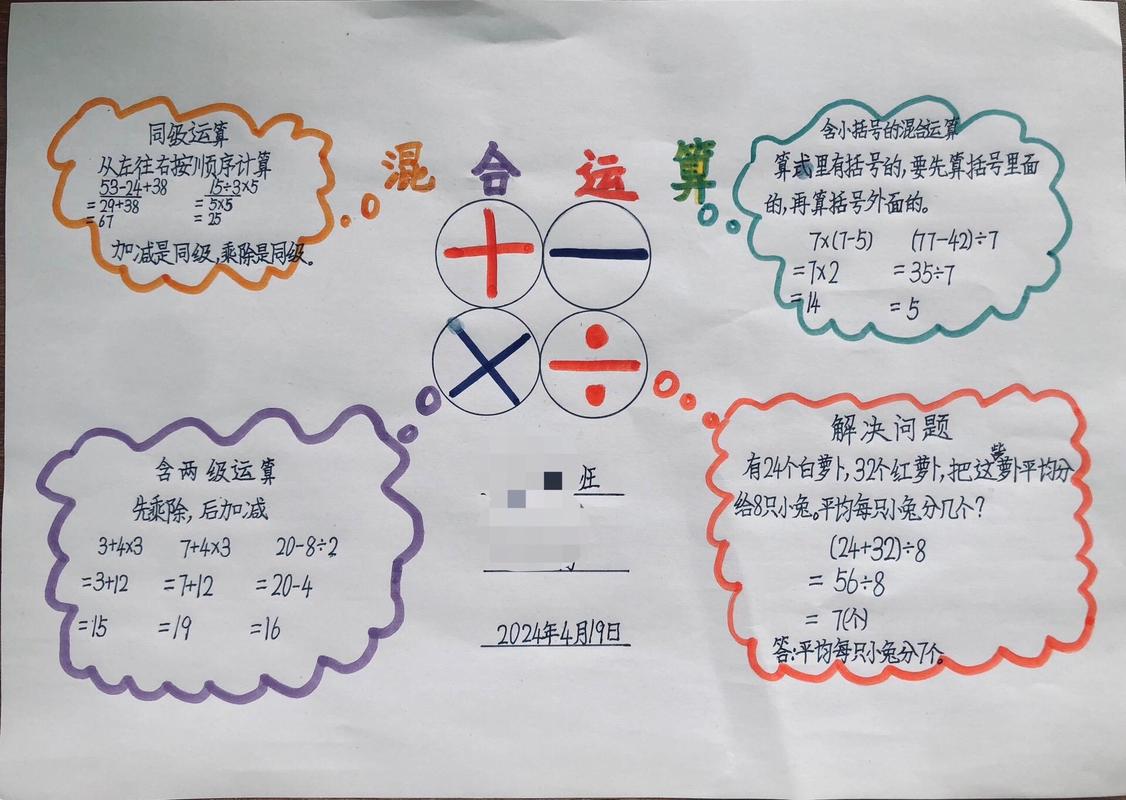 混合运算
同级运算
从左往右按顺序计算
53-24+38 15÷3×5
=29+38 =5×5
=67 =25
加减是同级,乘除是同级。
含小括号的混合运算
算式里有括号的,要先算括号里面
的,再算括号外面的。
7×(7-5) (77-42)÷7
=7×2 =35÷7
=14 =5
+ -
× ÷
含两级运算
先乘除,后加减
3+4×3 7+4×3 20-8÷2
=3+12 =7+12 =20-4
=15 =19 =16
班
2024年4月19日
解决问题
有24个白萝卜,32个红萝卜,把这些萝卜平均分
给8只小兔。平均每只小兔分几个?
(24+32)÷8
=56÷8
=7(个)
答:平均每只小兔分7个。